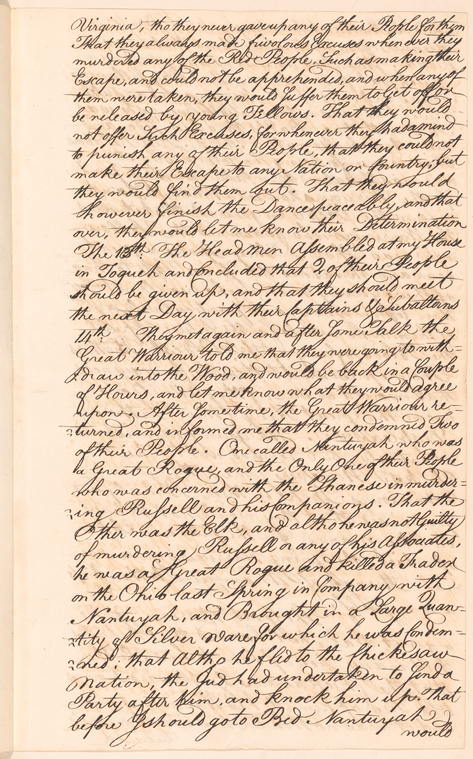 Virginia, tho they never gave up any of their People for them
That they always made frivolous Excuses whenever they
murdered any of the Red People, Such as making their
Escape, and could not be apprehended, and when any of
them were taken, they would suffer them to Get off or
be released by young Fellows. That they would
not offer Such Excuses, for whenever they had a mind
to punish any of their People, that they could not
make their Escape to any Nation or Country, but
they would find them out. That they would
however finish the Dance peaceably, and that
over, they would let me know their Determination
The 13th. The Head men Assembled at my House
in Toqueh and concluded that 2 of their People
should be given up, and that they should meet
the next Day with their Captains & Subalterns
14th They met again and after Some talk the
Great Warriour told me that they were going to with-
draw into the Wood, and would be back in a Couple
of Hours, and let me know what they would agree
upon. After Sometime, the Great Warriour re
turned, and informed me that they condemned Two
of their People. One called Nantuyah who was
a Great Rogue, and the Only One of their People
who was concerned with the Shanese in murder=
=ing Russell and his Companions. That the
Other was the Elk, and altho he was not Guilty
of murdering Russell or any of his Associates,
he was a Great Rogue and killed a Trader
on the Ohio last Spring in Company with
Nantuyah, and Brought in a Large Quan=
=tity of Silver ware for which he was Condem=
=ned: that Altho he fled to the Chickesaw
Nation, the Jud had undertaken to send a
Party after him, and knock him up. That
before I should go to Bed Nantuyah
would